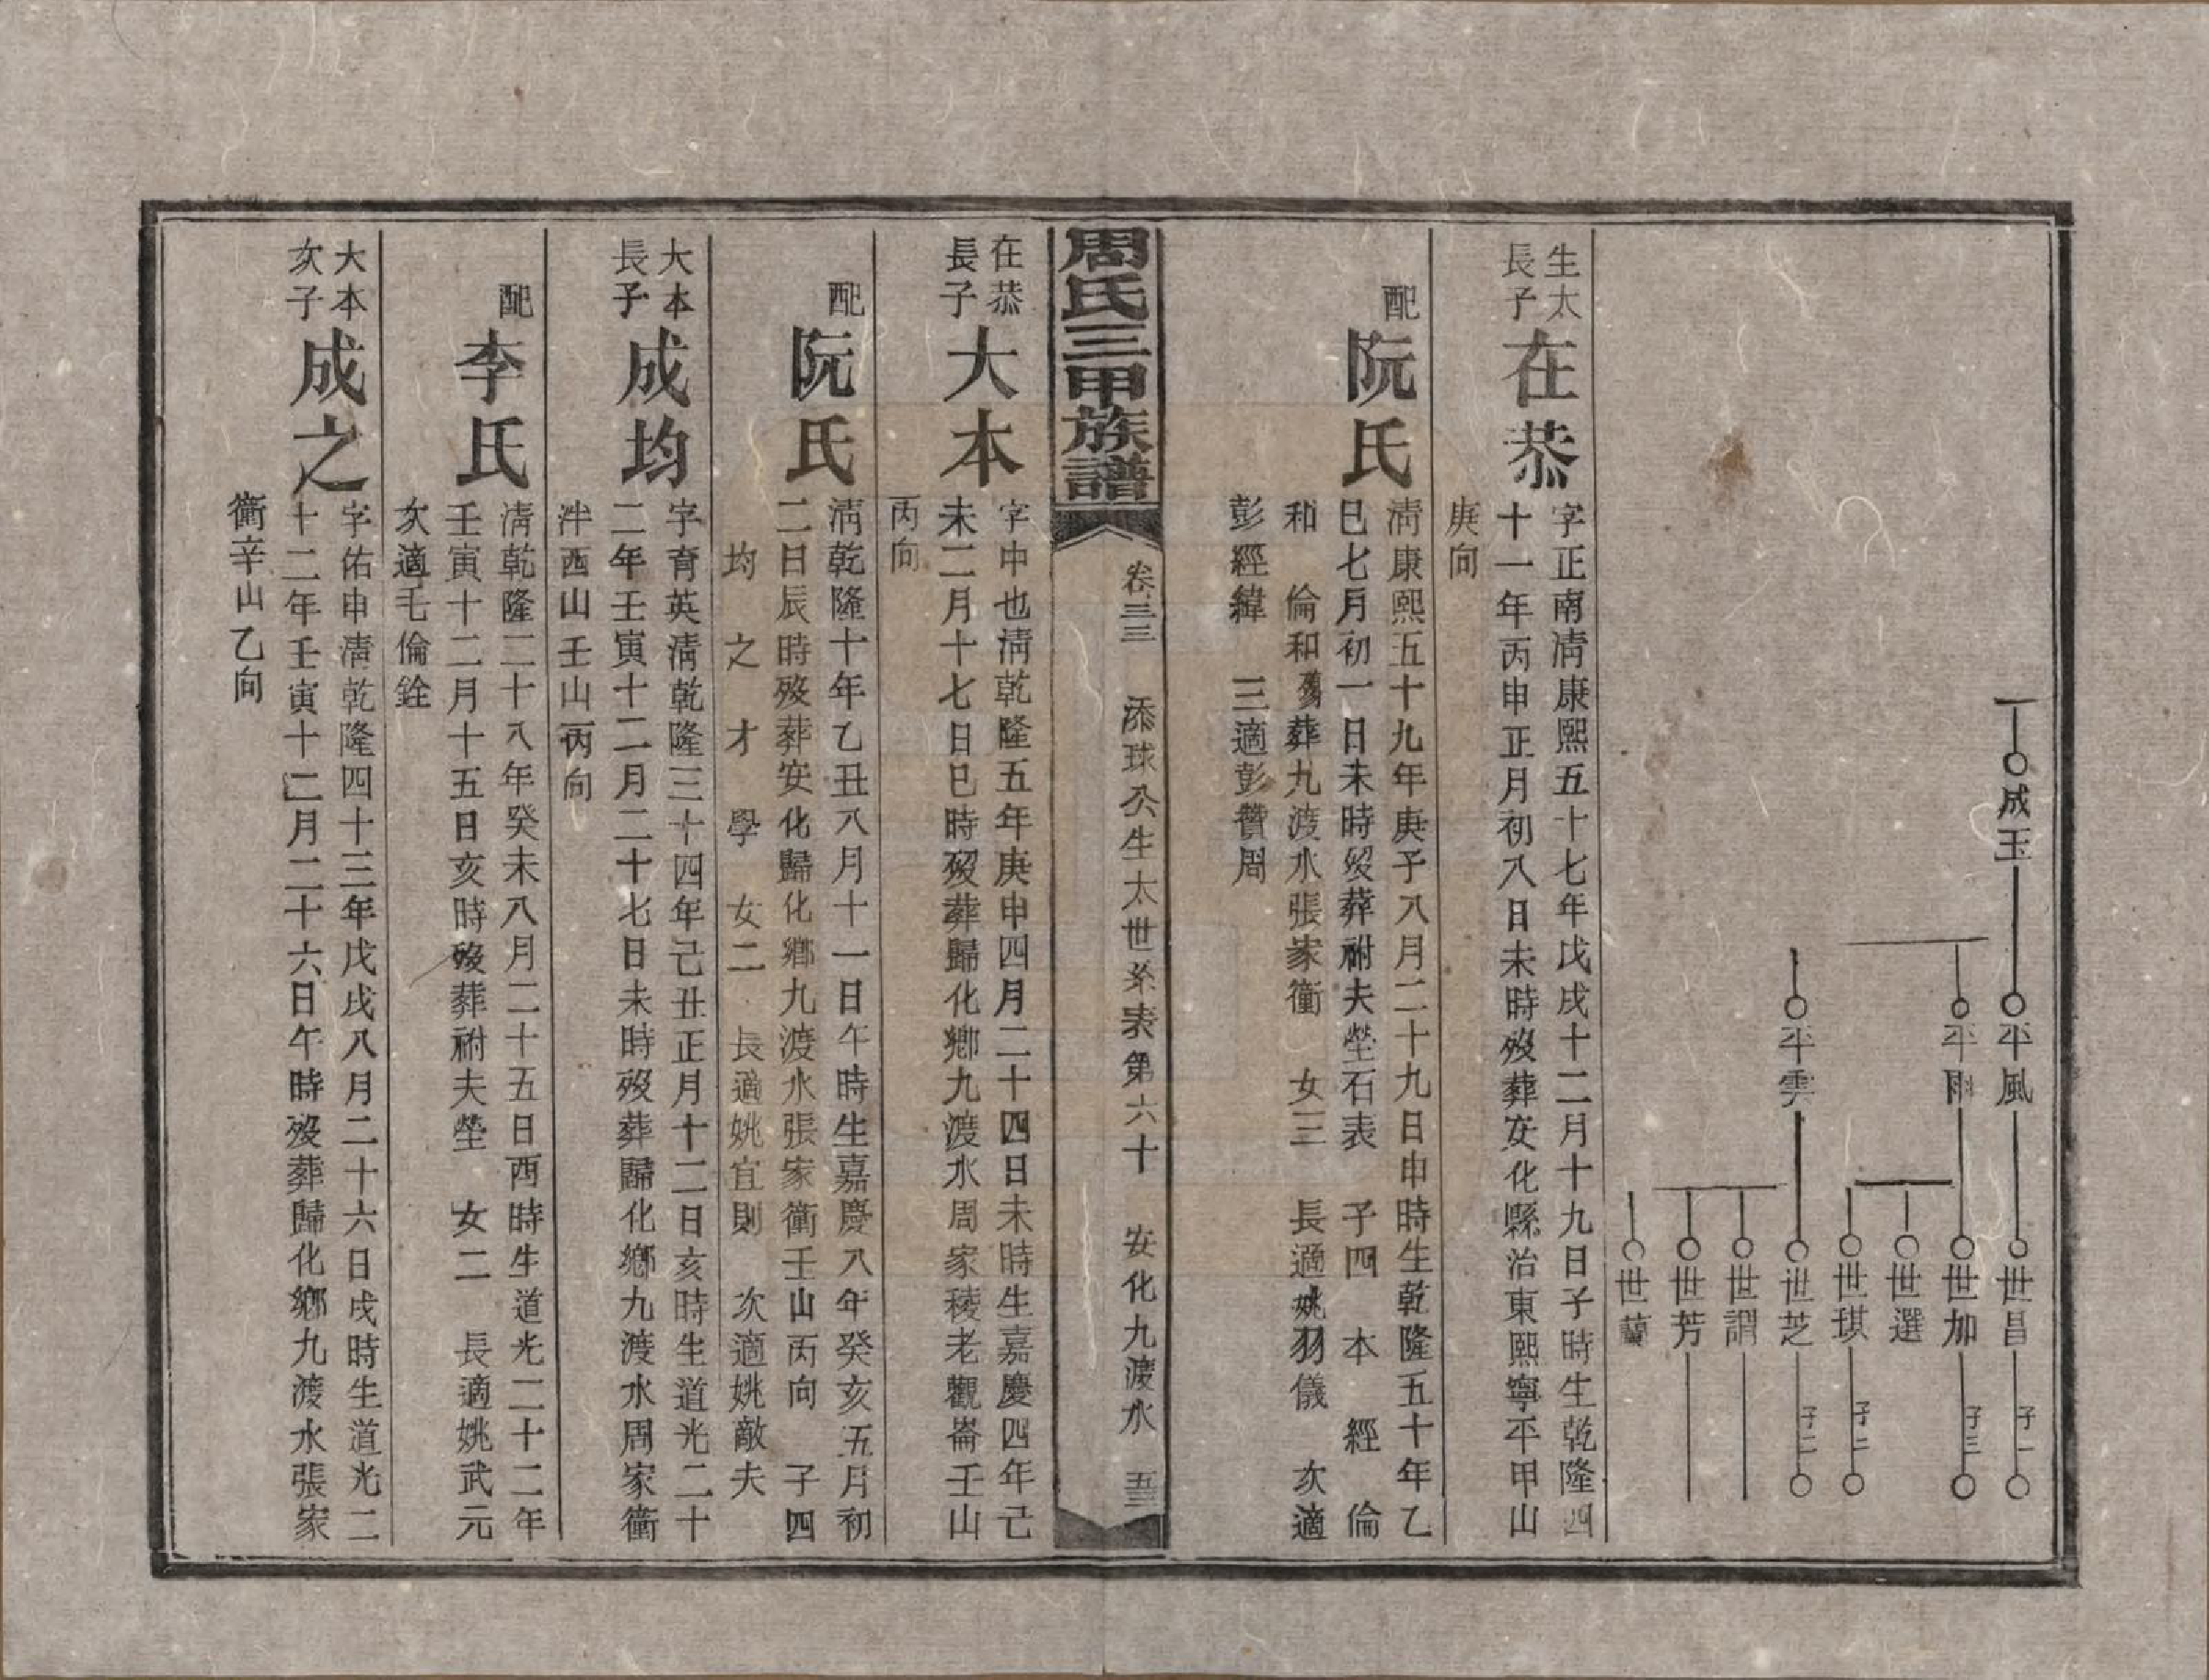 成玉
平風
平雨
平雲
世昌
世加
世選
世琪
世芝
世謂
世芳
世蘭
子一
子三
子二
子二
生太長子
在恭
字正南清康熙五十七年戊戌十二月十九日子時生乾隆四
十一年丙申正月初八日未時歿葬安化縣治東熙寧平甲山
庚向
配
阮氏
清康熙五十九年庚子八月二十九日申時生乾隆五十年乙
巳七月初一日未時歿葬祔夫塋石表 子四 本 經 倫
和 倫和殤葬九渡水張家衝 女三 長適姚羽儀 次適
彭經緯 三適彭贊周
周氏三甲族譜
卷三三 添球公生太世系表第六十 安化九渡水 五三
在恭長子
大本
字中也清乾隆五年庚申四月二十四日未時生嘉慶四年己
未二月十七日巳時歿葬歸化鄉九渡水周家稜老觀崙壬山
丙向
配
阮氏
清乾隆十年乙丑八月十一日午時生嘉慶八年癸亥五月初
二日辰時歿葬安化歸化鄉九渡水張家衝壬山丙向 子四
均 之 才 學 女二 長適姚宜則 次適姚敵夫
大本長子
成均
字育英清乾隆三十四年己丑正月十二日亥時生道光二十
二年壬寅十二月二十七日未時歿葬歸化鄉九渡水周家衝
泮西山壬山丙向
配
李氏
清乾隆二十八年癸未八月二十五日酉時生道光二十二年
壬寅十二月十五日亥時歿葬祔夫塋 女二 長適姚武元
次適毛倫銓
大本次子
成之
字佑申清乾隆四十三年戊戌八月二十六日戌時生道光二
十二年壬寅十二月二十六日午時歿葬歸化鄉九渡水張家
衝辛山乙向